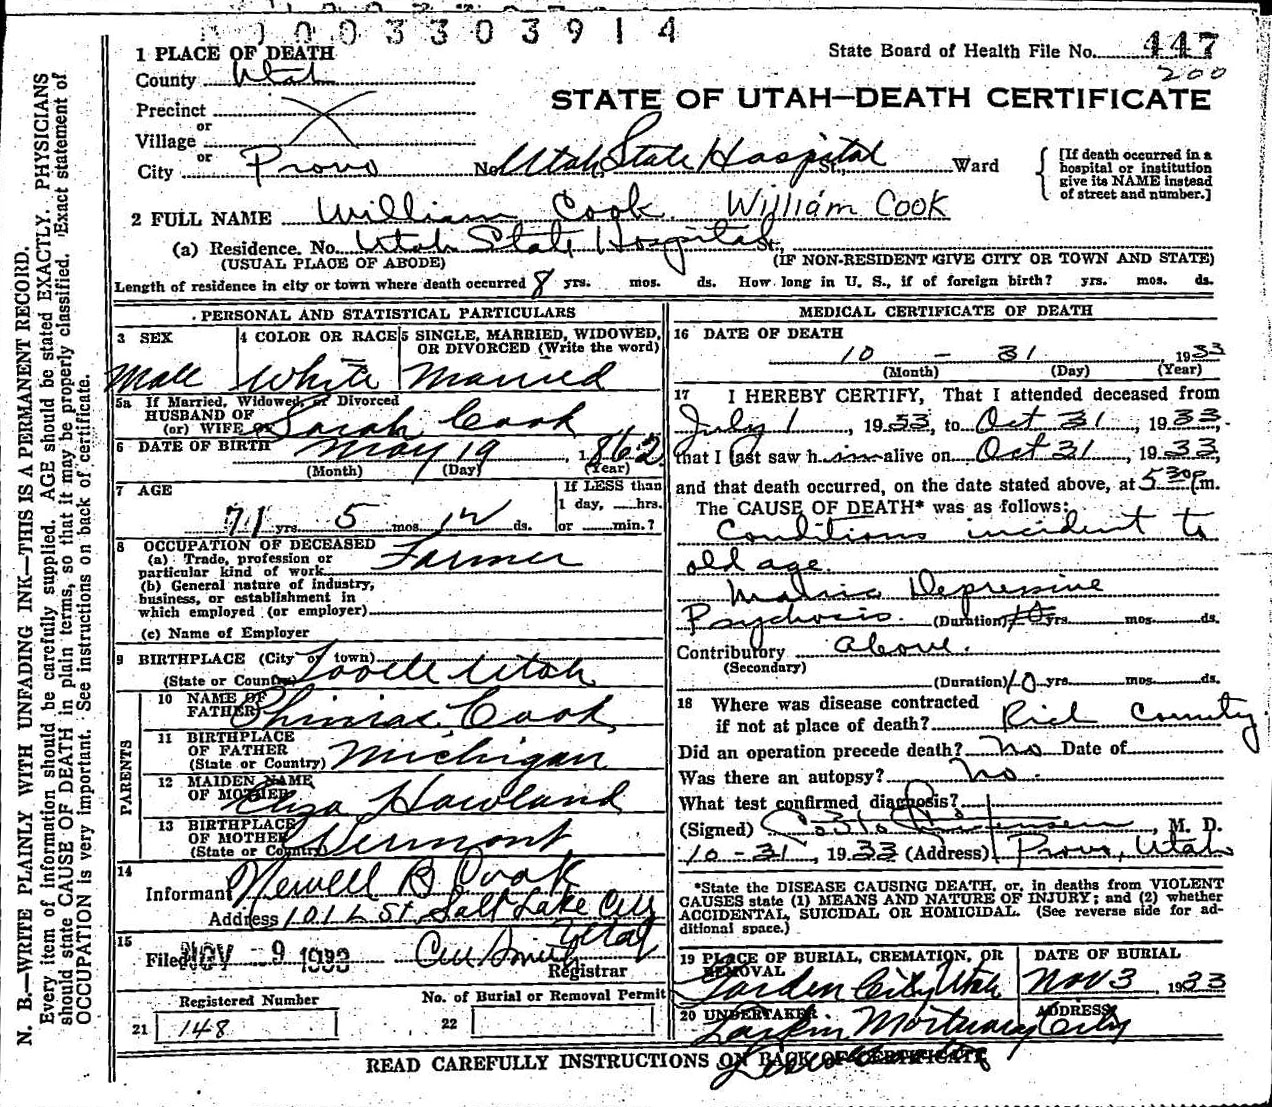 0 0 3 3 0 3 9 1 4
1 PLACE OF DEATH
State Board of Health File No. 447
200
County Utah
STATE OF UTAH—DEATH CERTIFICATE
Precinct
or
Village
or
City Provo No. Utah State Hospital St., Ward
[If death occurred in a
hospital or institution
give its NAME instead
of street and number.]
2 FULL NAME William Cook William Cook
(a) Residence. No. Utah State Hospital St.,
(USUAL PLACE OF ABODE) (IF NON-RESIDENT GIVE CITY OR TOWN AND STATE)
Length of residence in city or town where death occurred 8 yrs. mos. ds. How long in U. S., if of foreign birth? yrs. mos. ds.
PERSONAL AND STATISTICAL PARTICULARS
3 SEX
Male
4 COLOR OR RACE
White
5 SINGLE, MARRIED, WIDOWED,
OR DIVORCED (Write the word)
Married
5a If Married, Widowed, or Divorced
HUSBAND OF
(or) WIFE of Sarah Cook
6 DATE OF BIRTH May 19, 1862
(Month) (Day) (Year)
7 AGE
71 yrs. 5 mos. 12 ds.
If LESS than
1 day, hrs.
or min.?
8 OCCUPATION OF DECEASED
(a) Trade, profession or
particular kind of work Farmer
(b) General nature of industry,
business, or establishment in
which employed (or employer)
(c) Name of Employer
9 BIRTHPLACE (City or town)
(State or Country) Tooele Utah
PARENTS
10 NAME OF
FATHER Phineas Cook
11 BIRTHPLACE
OF FATHER
(State or Country) Michigan
12 MAIDEN NAME
OF MOTHER Eliza Howland
13 BIRTHPLACE
OF MOTHER
(State or Country) Vermont
14
Informant Newell B Cook
Address 101 L St. Salt Lake City
Utah
15
Filed NOV -9 1933
Registrar
Registered Number
21 148
No. of Burial or Removal Permit
22
MEDICAL CERTIFICATE OF DEATH
16 DATE OF DEATH
10 - 31, 1933
(Month) (Day) (Year)
17 I HEREBY CERTIFY, That I attended deceased from
July 1, 1933, to Oct 31, 1933,
that I last saw him alive on Oct 31, 1933,
and that death occurred, on the date stated above, at 5 30 p.m.
The CAUSE OF DEATH* was as follows:
Conditions incident to
old age.
Manic Depressive
Psychosis. (Duration) 10 yrs. mos. ds.
Contributory above.
(Secondary)
(Duration) 10 yrs. mos. ds.
18 Where was disease contracted
if not at place of death? Rich County
Did an operation precede death? no Date of
Was there an autopsy? no.
What test confirmed diagnosis?
(Signed) , M. D.
10-31, 1933 (Address) Provo, Utah
*State the DISEASE CAUSING DEATH, or, in deaths from VIOLENT
CAUSES state (1) MEANS AND NATURE OF INJURY; and (2) whether
ACCIDENTAL, SUICIDAL OR HOMICIDAL. (See reverse side for ad-
ditional space.)
19 PLACE OF BURIAL, CREMATION, OR
REMOVAL
Garden City, Utah
DATE OF BURIAL
Nov 3, 1933
20 UNDERTAKER
Larkin Mortuary
ADDRESS
City
READ CAREFULLY INSTRUCTIONS ON BACK OF CERTIFICATE
N. B.—WRITE PLAINLY WITH UNFADING INK—THIS IS A PERMANENT RECORD.
Every item of information should be carefully supplied. AGE should be stated EXACTLY. PHYSICIANS
should state CAUSE OF DEATH in plain terms, so that it may be properly classified. Exact statement of
OCCUPATION is very important. See instructions on back of certificate.